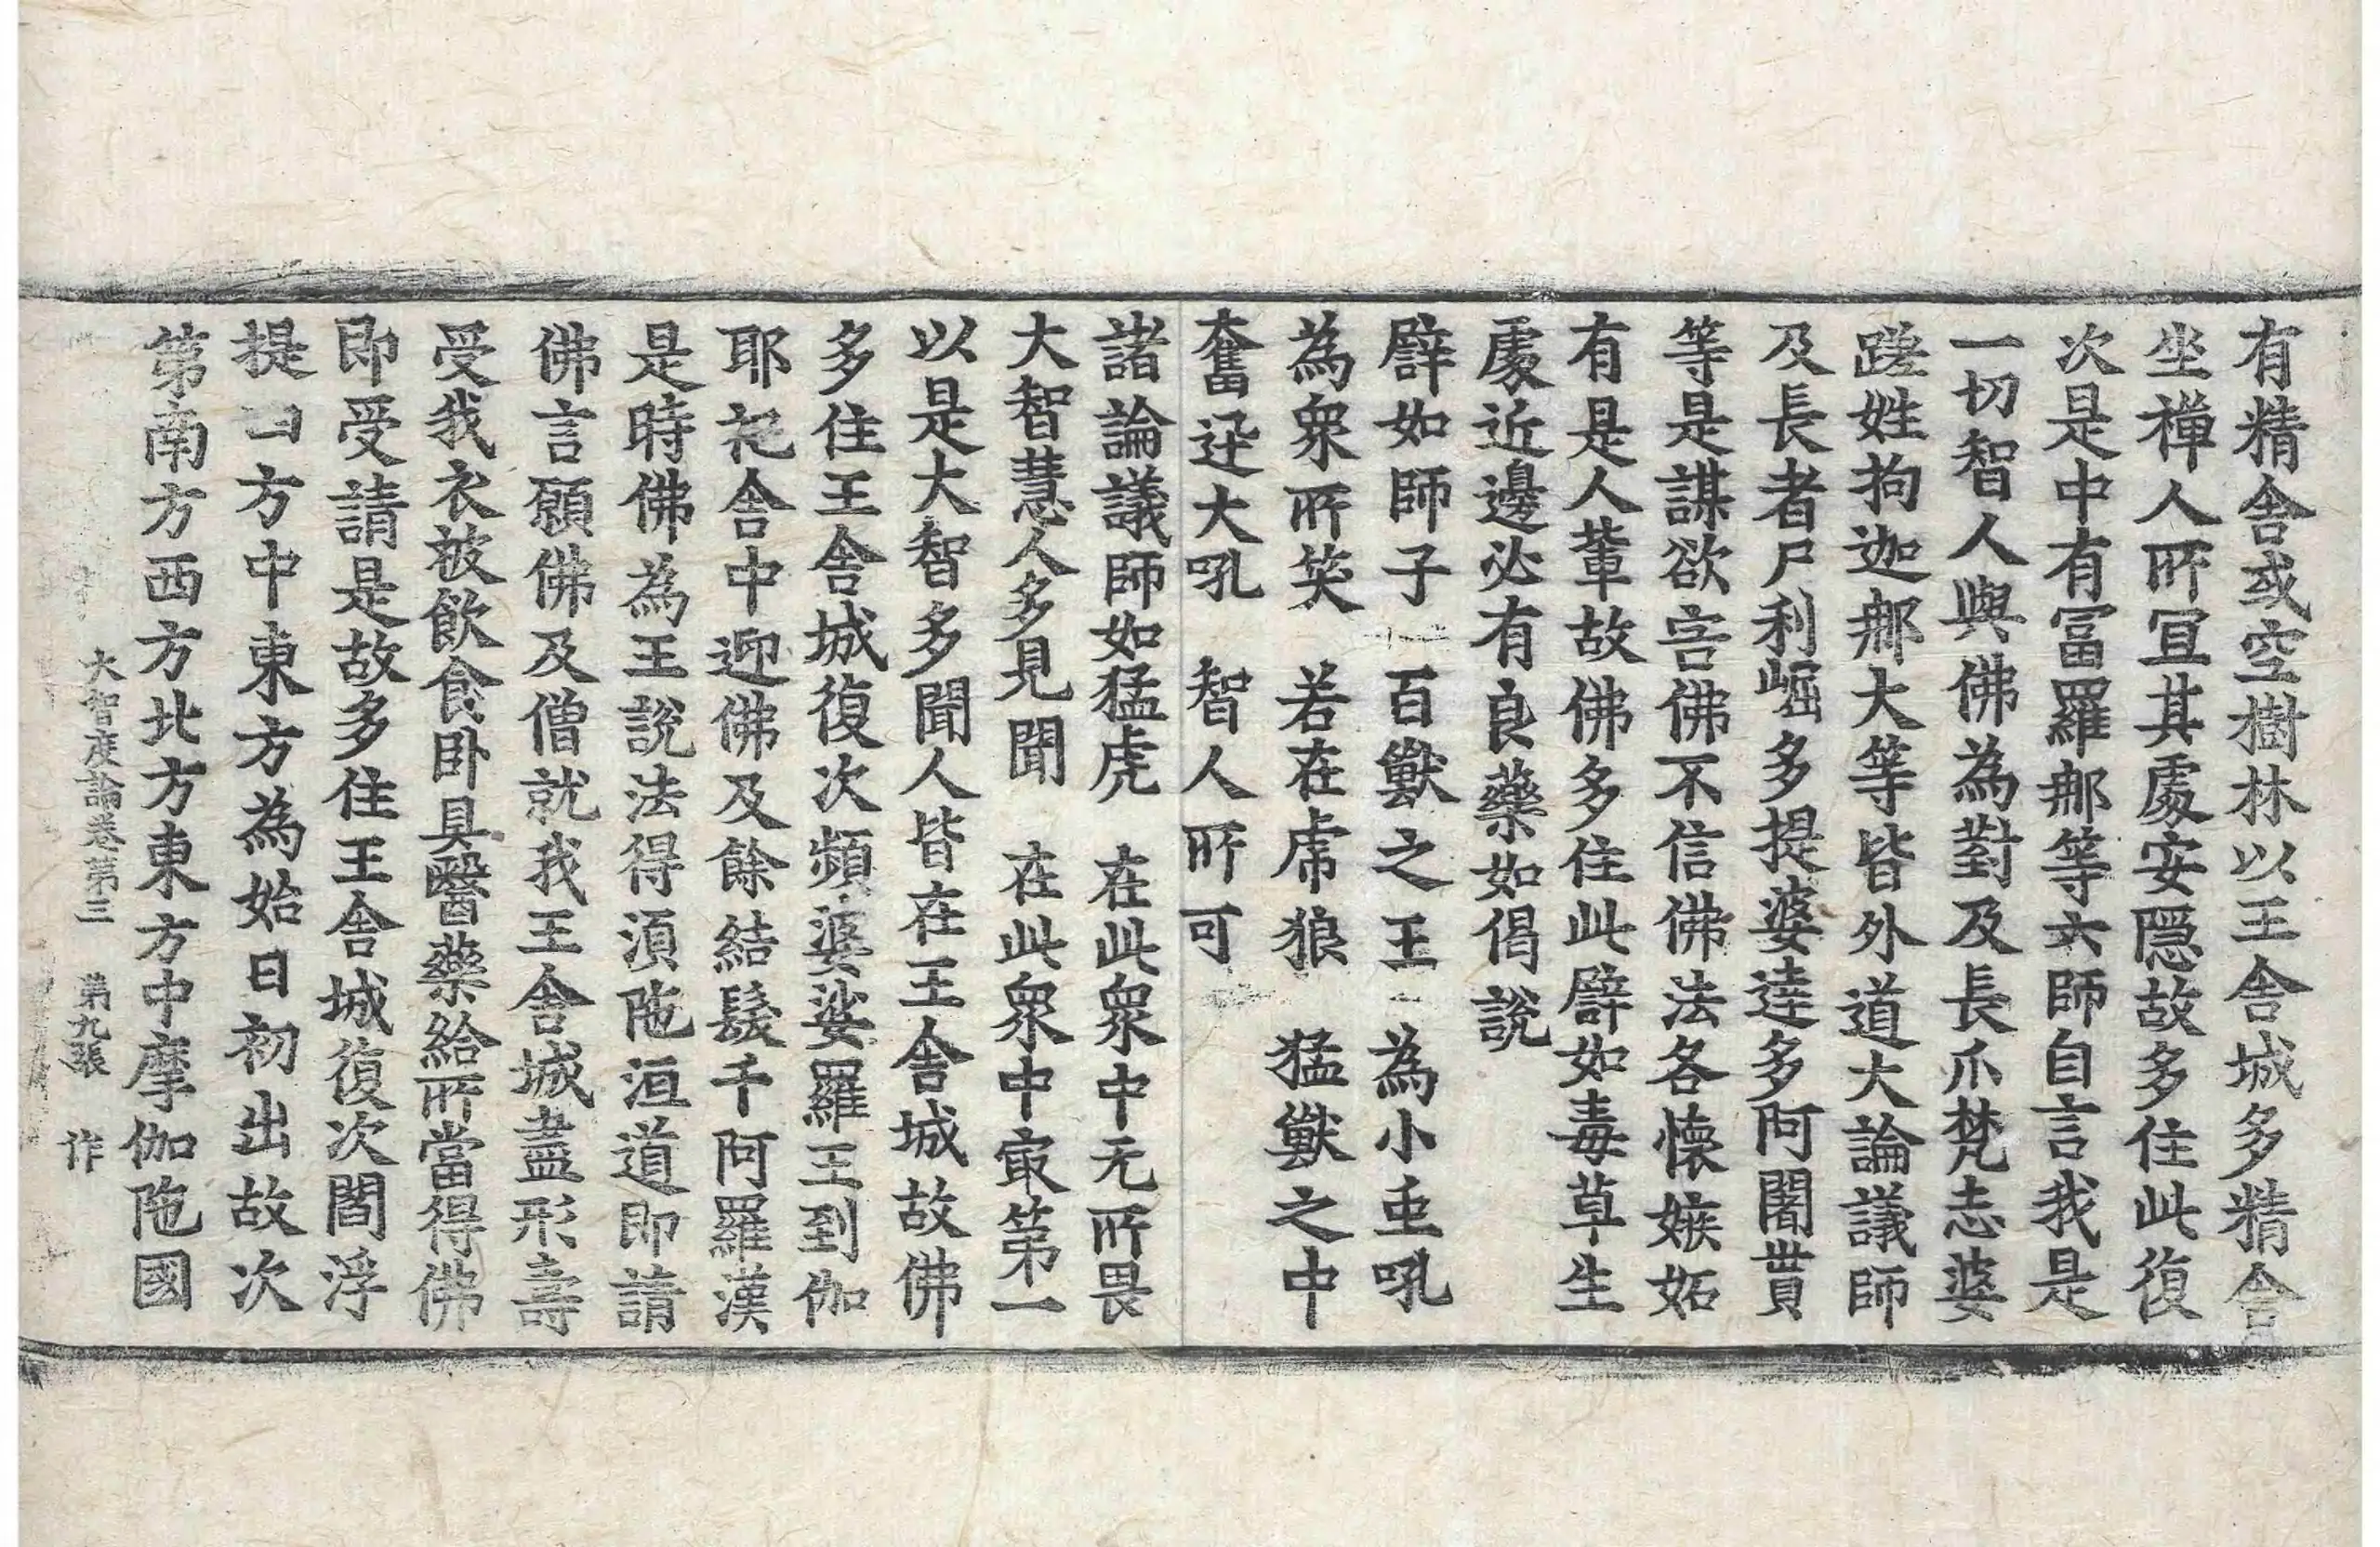 有精舍或空樹林以王舍城多精舍
坐禪人所冝其處安隠故多住此復
次是中有冨羅那等六師自言我是
一切智人與佛為對及長爪梵志婆
蹉姓拘迦那大等皆外道大論議師
及長者尸利崛多提婆達多阿闍貰
等是謀欲害佛不信佛法各懷嫉妬
有是人輩故佛多住此譬如毒草生
處近邊必有良藥如偈說
譬如師子 百獸之王 為小虫吼
為衆所笑 若在虎狼 猛獸之中
奮迅大吼 智人所可
諸論議師如猛虎 在此衆中无所畏
大智慧人多見聞 在此衆中㝡第一
以是大智多聞人皆在王舍城故佛
多住王舍城復次頻婆娑羅王到伽
耶祀舍中迎佛及餘結髮千阿羅漢
是時佛為王說法得湏陁洹道即請
佛言願佛及僧就我王舍城盡形壽
受我衣被飲食卧具醫藥給所當得佛
即受請是故多住王舍城復次閻浮
提四方中東方為始日初出故次
第南方西方北方東方中摩伽陁國
大智度論卷第三 第九張 作